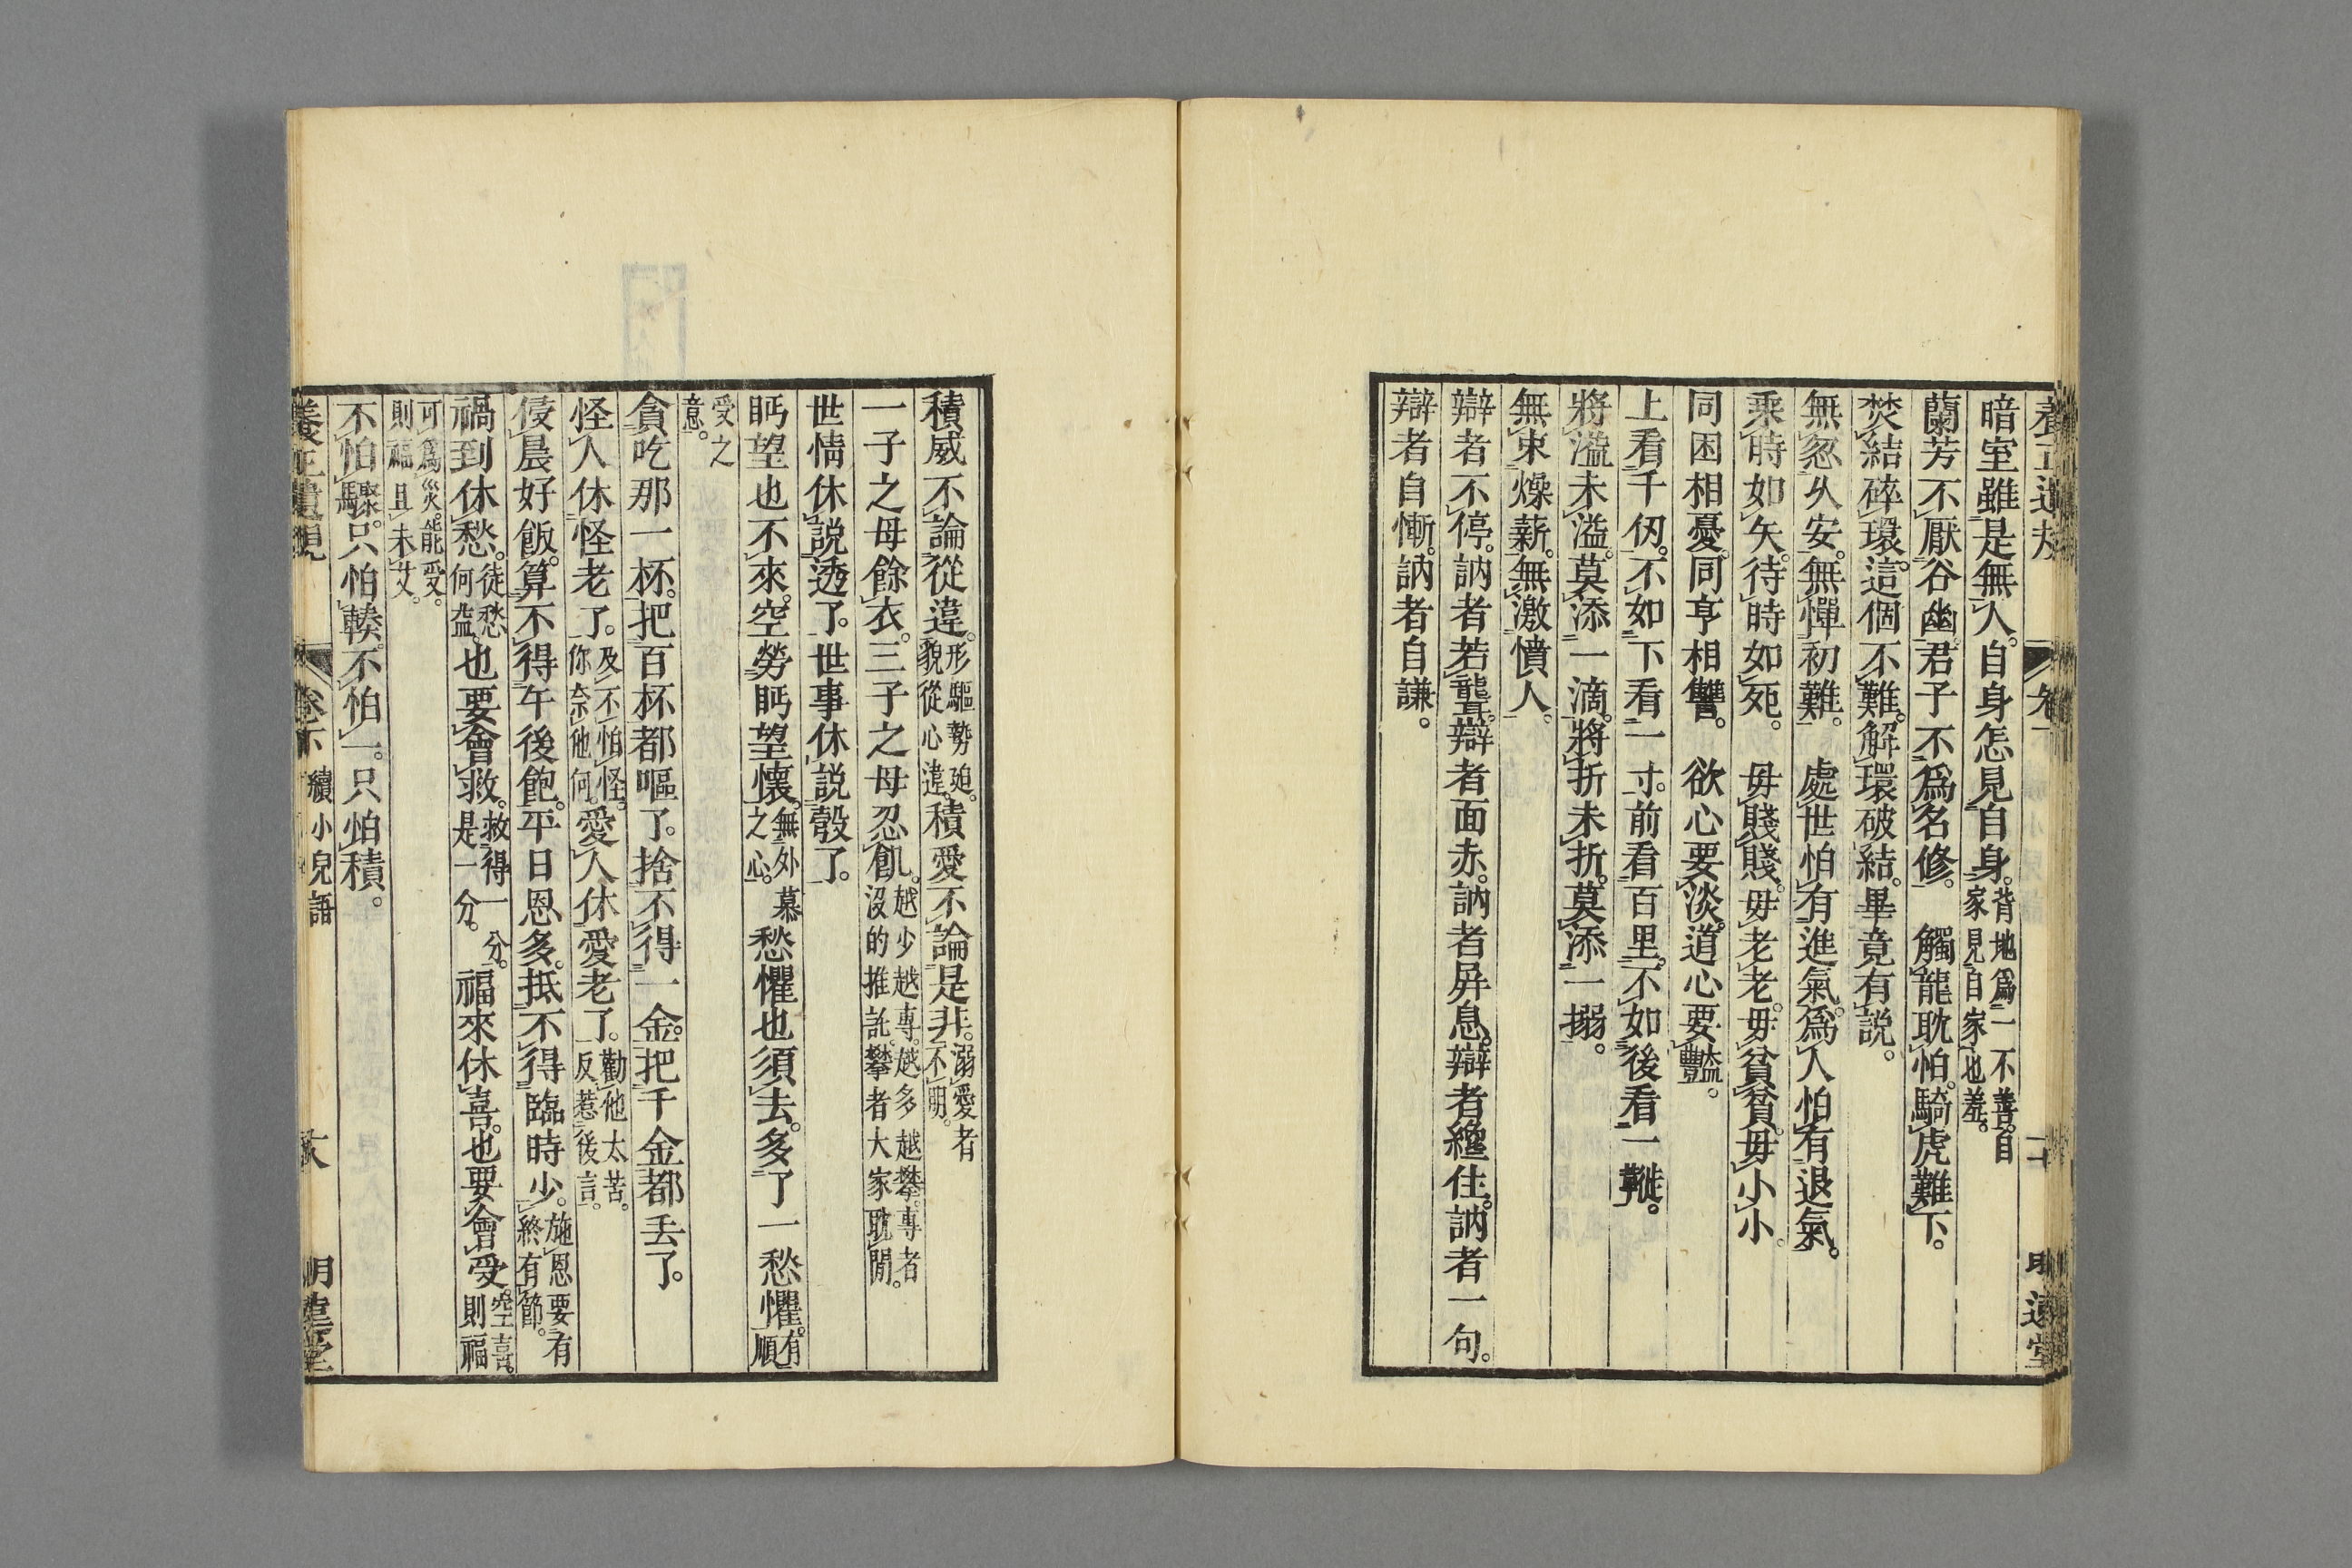 養正遺規 卷下 二十 明遠堂
暗室雖是無人。自身怎見自身。背地爲一不善。自家見自家也羞。
蘭芳不厭谷幽。君子不爲名修。 觸龍耽怕。騎虎難下。
焚結碎環。這個不難。解環破結。畢竟有説。
無忽久安。無憚初難。 處世怕有進氣。爲人怕有退氣。
乘時如矢。待時如死。 毋賤賤。毋老老。毋貧貧。毋小小。
同困相憂。同亨相讐。 欲心要淡。道心要豔。
上看千仞。不如下看一寸。前看百里。不如後看一鞋。
將溢未溢。莫添一滴。將折未折。莫添一搦。
無束燥薪。無激憤人。
辯者不停。訥者若聾。辯者面赤。訥者屏息。辯者纔住。訥者一句。
辯者自慚。訥者自謙。
積威不論從違。形驅勢廹。貌從心違。積愛不論是非。溺愛者不明。
一子之母餘衣。三子之母忍飢。越少越專。越多越攀。專者沒的推託。攀者大家耽閒。
世情休説透了。世事休説彀了。
眄望也不來。空勞眄望懷。無外慕之心。愁懼也須去。多了一愁懼。有順
受之意。
貪吃那一杯。把百杯都嘔了。捨不得一金。把千金都丢了。
怪人休怪老了。及不怕怪。你奈他何。愛人休愛老了。勸他太苦。反惹後言。
侵晨好飯。算不得午後飽。平日恩多。抵不得臨時少。施恩要有終有節。
禍到休愁。徒愁何益。也要會救。救得一分。是一分。福來休喜。也要會受。空喜。則福
可爲災。能受。則福且未艾。
不怕驟。只怕輳。不怕一。只怕積。
養正遺規 卷下 續小兒語 明遠堂